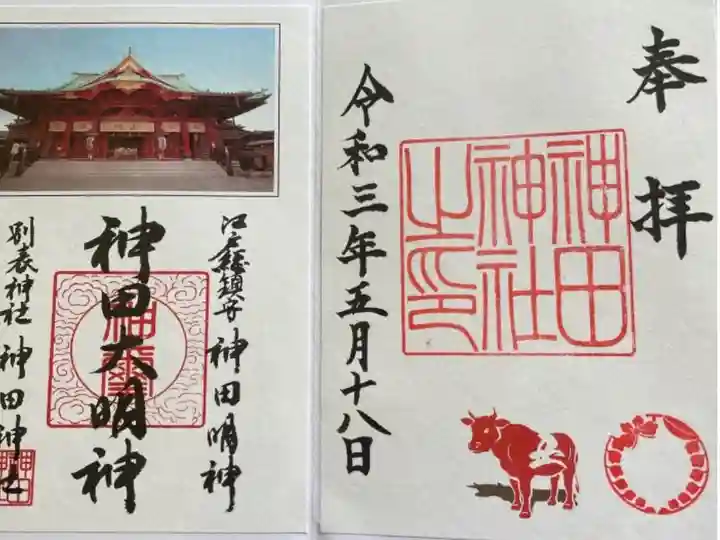 奉拝
神田神社之印
令和三年五月十八日
江戸総鎮守 神田明神
神田大明神
別表神社 神田神社